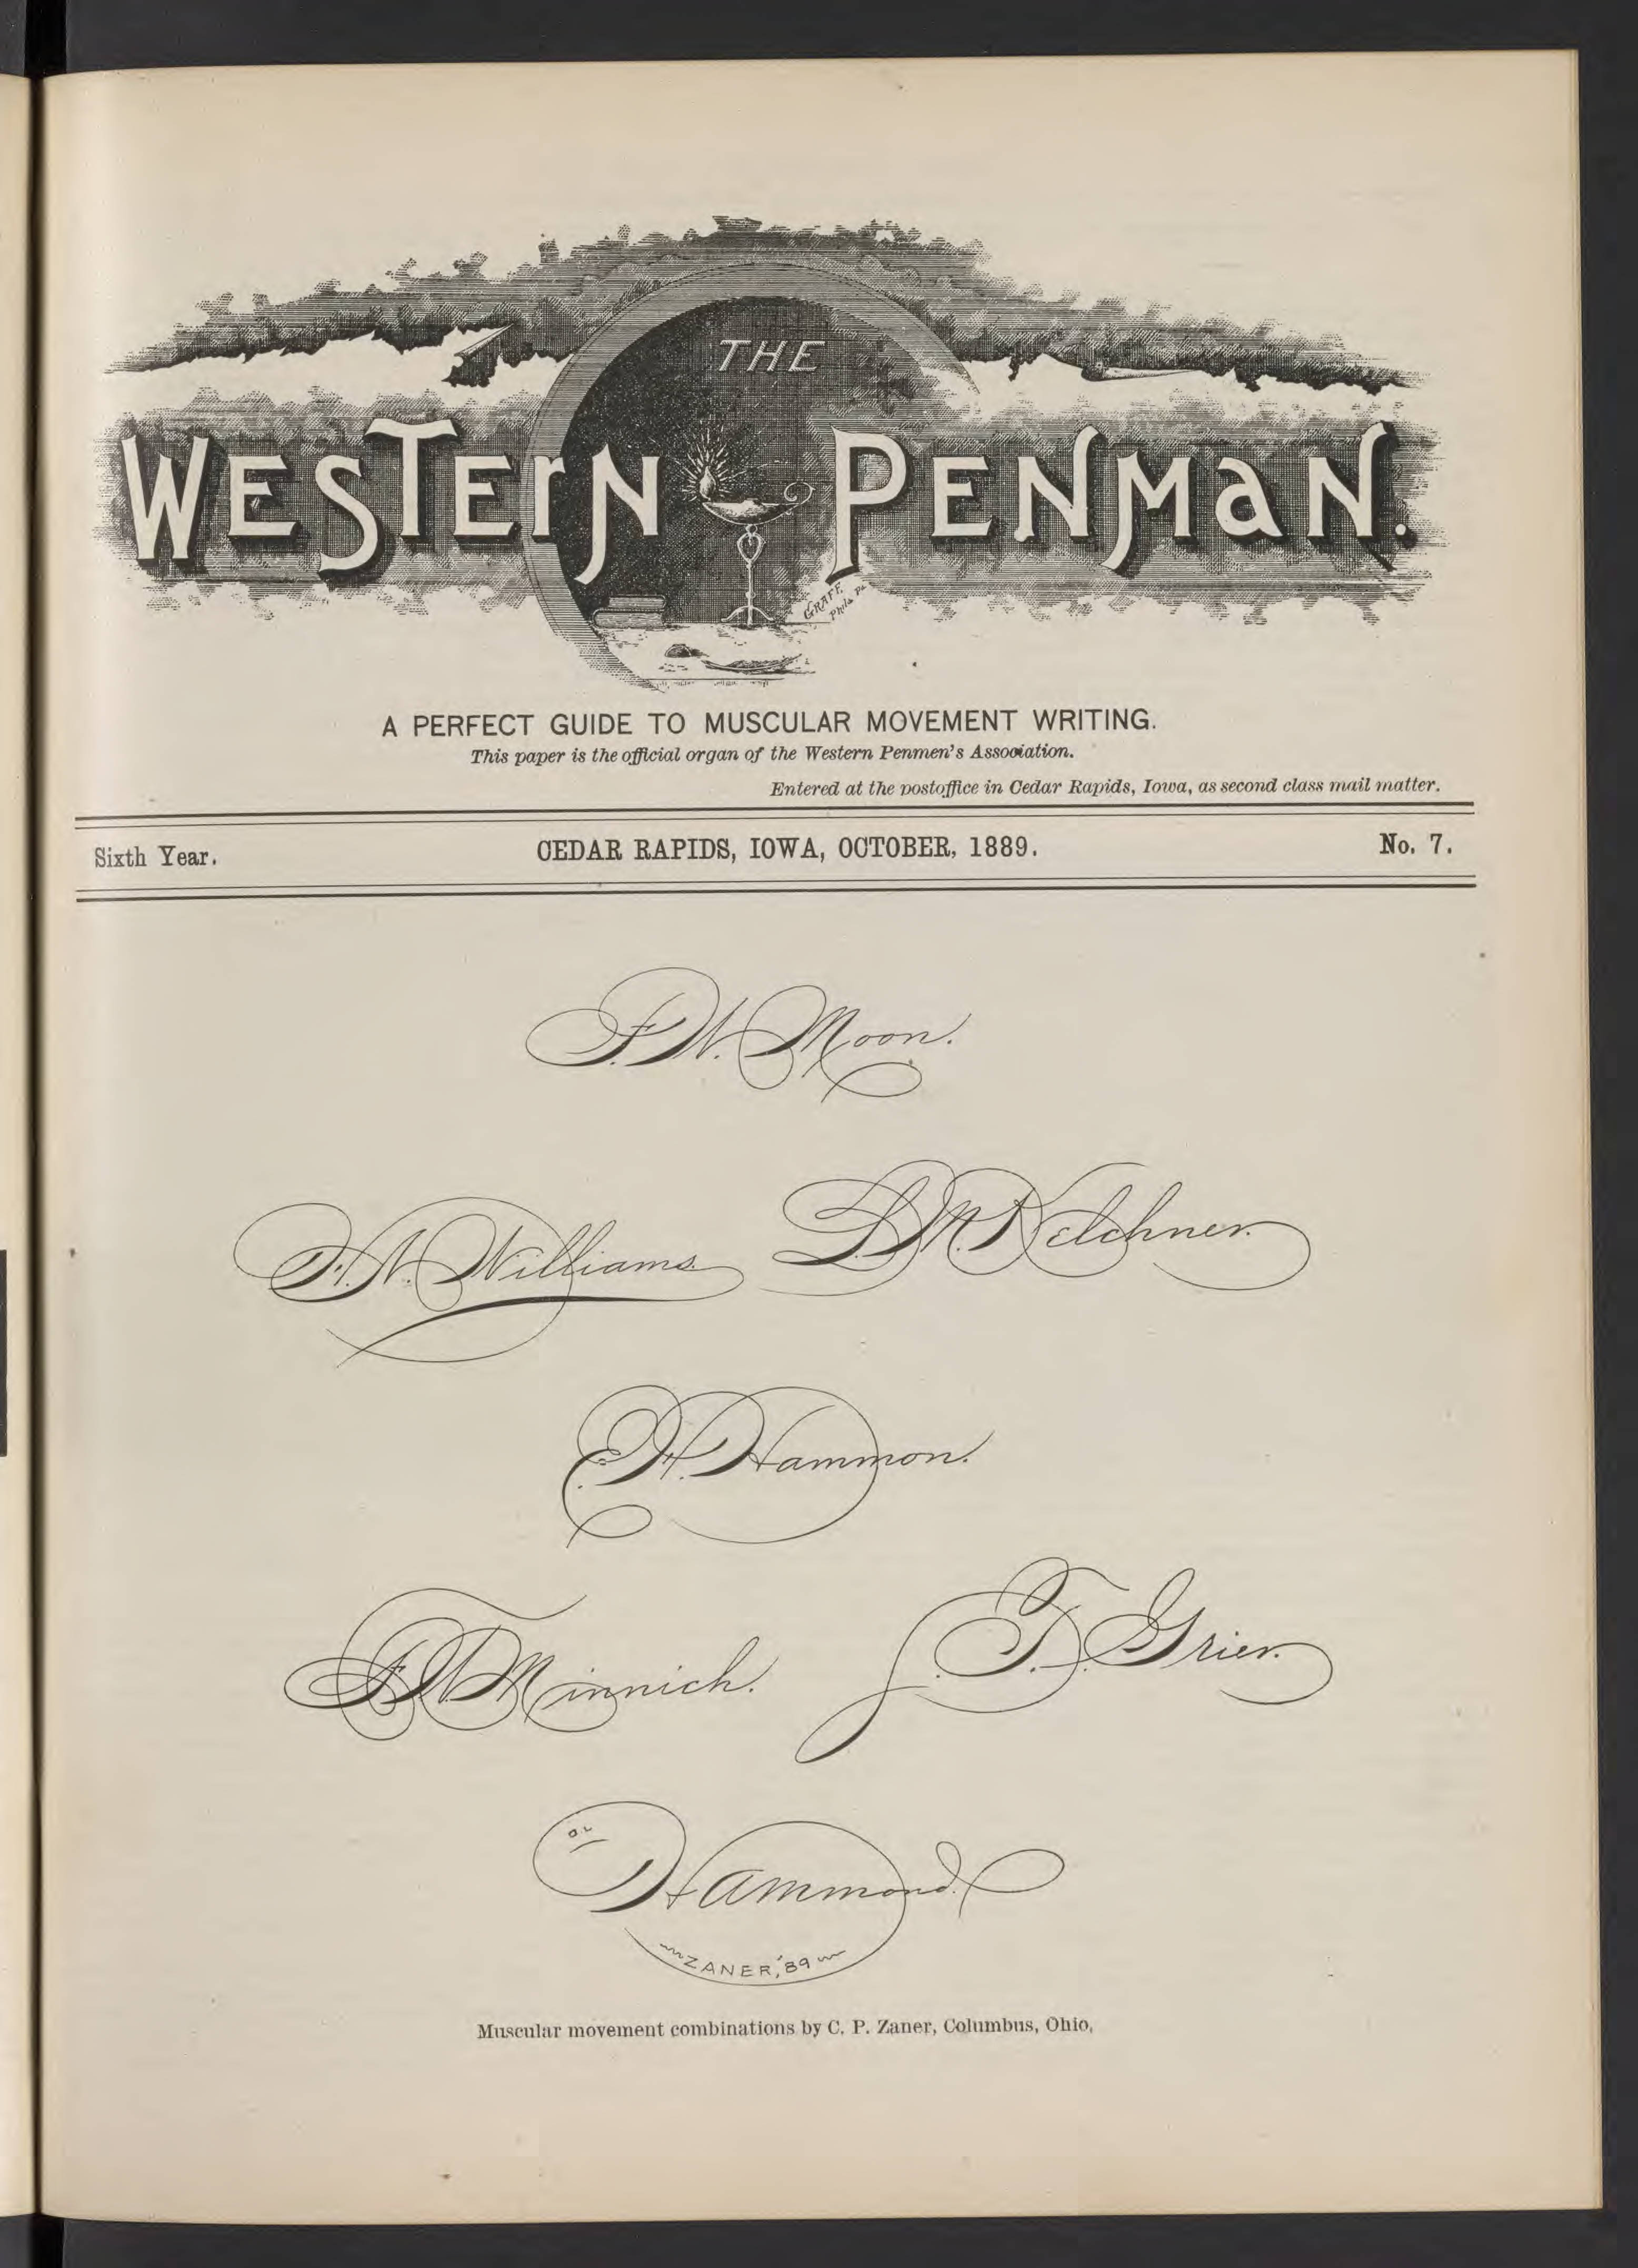 THE
WESTERN PENMAN.
GRAFF.
Phila Pa
A PERFECT GUIDE TO MUSCULAR MOVEMENT WRITING.
This paper is the official organ of the Western Penmen's Association.
Entered at the postoffice in Cedar Rapids, Iowa, as second class mail matter.
Sixth Year. CEDAR RAPIDS, IOWA, OCTOBER, 1889. No. 7.
F. W. Moon.
Williams. L. M. Kelchner.
E. H. Hammon.
Minnich. T. Grier.
Hammond.
ZANER, '89
Muscular movement combinations by C. P. Zaner, Columbus, Ohio,